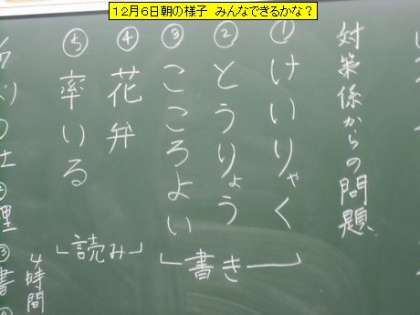 １２月６日朝の様子　みんなできるかな？
対策係からの問題
①けいりゃく
②とうりょう
③こころよい
書き
④花弁
⑤率いる
読み
4時間
②理③書